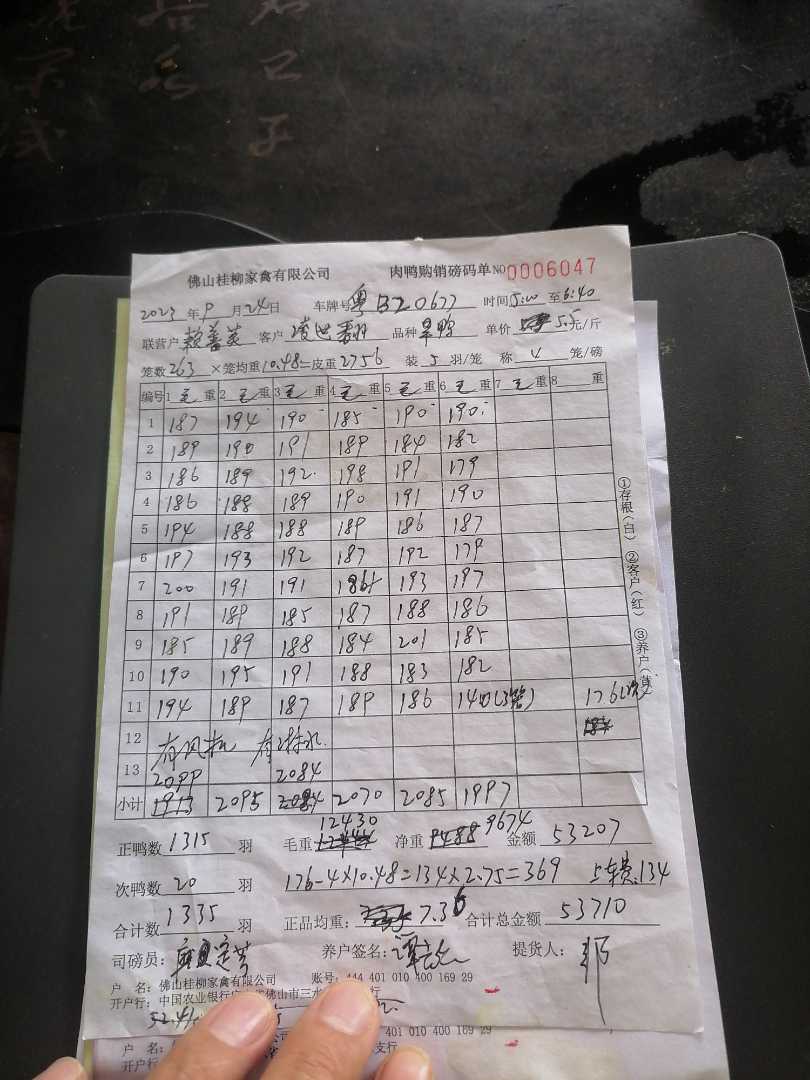 佛山桂柳家禽有限公司 肉鸭购销磅码单 NO 0006047
2023年9月24日 车牌号 粤B20677 时间 5:00 至 6:40
联营户 客户 品种 旱鸭 单价 5.5元/斤
笼数 263 ×笼均重 10.48=皮重 2756 装 5 羽/笼 称 4 笼/磅
编号 1 毛重 2 毛重 3 毛重 4 毛重 5 毛重 6 毛重 7 毛重 8 重
1 187 194 190 185 190 190
2 189 190 191 189 184 182
3 186 189 192 198 191 179
4 186 188 189 190 191 190
5 194 188 188 189 186 187
6 197 193 192 187 192 179
7 200 191 191 186 193 197
8 191 189 185 187 188 186
9 185 189 188 184 201 185
10 190 195 191 188 183 182
11 194 189 187 189 186 140(3笼) 176
12 有风机 有 水
13 2099 2084
小计 2095 2070 2085 1997
12430 9674
正鸭数 1315 羽 毛重 净重 金额 53207
次鸭数 20 羽 176-4×10.48=134×2.75=369 车费134
合计数 1335 羽 正品均重: 7.36 合计总金额 53710
司磅员: 养户签名: 提货人:
①存根(白) ②客户(红) ③养户(黄)
户 名: 佛山桂柳家禽有限公司 账号: 444 401 010 400 169 29
开户行: 中国农业银行 佛山市三水 行
52.41
401 010 400 169 29
户 名: 支行
开户行